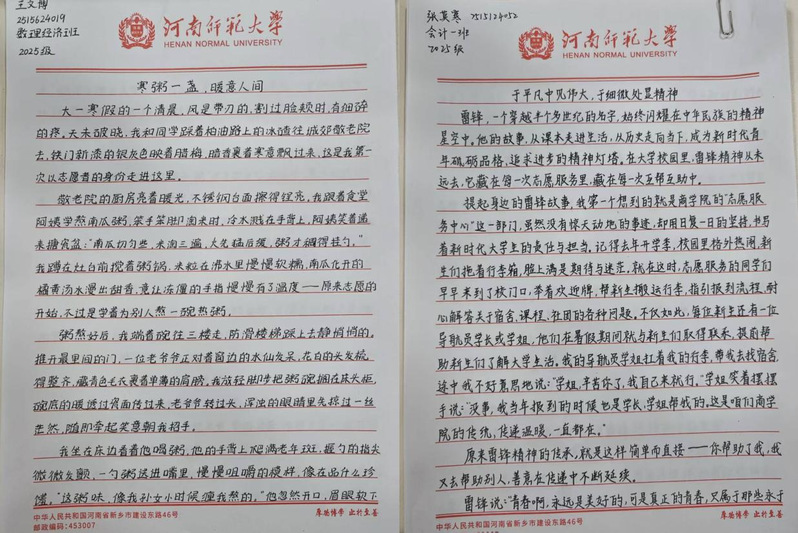 王文博
2515624019
数理经济班
2025级
河南师范大学
HENAN NORMAL UNIVERSITY
寒粥一盏,暖意人间
大一寒假的一个清晨,风是带刀的,割过脸颊时,有细碎
的疼。天未破晓,我和同学踩着柏油路上的冰碴往城郊敬老院
去,铁门新漆的银灰色映着腊梅,暗香裹着寒意飘过来,这是我第一
次以志愿者的身份走进这里。
敬老院的厨房亮着暖光,不锈钢台面擦得锃亮。我跟着食堂
阿姨学熬南瓜粥,笨手笨脚淘米时,冷水溅在手背上,阿姨笑着递
来搪瓷盆:"南瓜切匀些,米淘三遍,大火猛后缓,粥才稠得挂勺。"
我蹲在灶台前搅着粥锅,米粒在沸水里慢慢软糯,南瓜化开的
橘黄汤水漫出甜香,竟让冻僵的手指慢慢有了温度——原来志愿的
开始,不过是学着为别人熬一碗热粥。
粥熬好后,我端着碗往三楼走,防滑楼梯踩上去静悄悄的。
推开最里间的门,一位老爷爷正对着窗边的水仙发呆,花白的头发梳
得整齐,藏青色毛衣裹着单薄的肩膀。我放轻脚步把粥碗搁在床头柜,
碗底的暖透过瓷面传过来,老爷爷转过头,浑浊的眼睛里先掠过一丝
茫然,随即牵起笑意朝我招手。
我坐在床边看着他喝粥,他的手背上爬满老年斑,握勺的指尖
微微发颤,一勺粥送进嘴里,慢慢咀嚼的模样,像在品什么珍
馐。"这粥味,像我孙女小时候缠我熬的。"他忽然开口,眉眼软下
中华人民共和国河南省新乡市建设东路46号
邮政编码:453007
厚德博学 止于至善
张英寒 2515124052
会计一班
2025级
河南师范大学
HENAN NORMAL UNIVERSITY
于平凡中见伟大,于细微处显精神
雷锋,一个穿越半个多世纪的名字,始终闪耀在中华民族的精神
星空中。他的故事,从课本走进生活,从历史走向当下,成为新时代青
年砥砺品格,追求进步的精神灯塔。在大学校园里,雷锋精神从未
远去,它藏在每一次志愿服务里,藏在每一次互帮互助中。
提起身边的雷锋故事,我第一个想到的就是商学院的"志愿服
务中心"这一部门,虽然没有惊天动地的事迹,却用日复一日的坚持,书写
着新时代大学生的责任与担当。记得去年开学季,校园里格外热闹,新
生们拖着行李箱,脸上满是期待与迷茫。就在这时,志愿服务的同学们
早早来到了校门口,举着欢迎牌,帮新生搬运行李,指引报到流程,耐
心解答关于宿舍、课程、社团的各种问题。不仅如此,每位新生还有一位
导航员学长或学姐,他们在暑假期间就与新生们取得联系,提前帮
助新生们了解大学生活。我的导航员学姐扛着我的行李,带我去找宿舍,
途中我不好意思地说:"学姐,辛苦你了,我自己来就行。"学姐笑着摆摆
手说:"没事,我当年报到的时候也是学长、学姐帮我的。这是咱们商学
院的传统,传递温暖,一直都在。"
原来雷锋精神的传承,就是这样简单而直接——你帮助了我,我
又去帮助别人,善意在传递中不断延续。
雷锋说:"青春啊,永远是美好的,可是真正的青春,只属于那些永于
中华人民共和国河南省新乡市建设东路46号
邮政编码:453007
厚德博学 止于至善